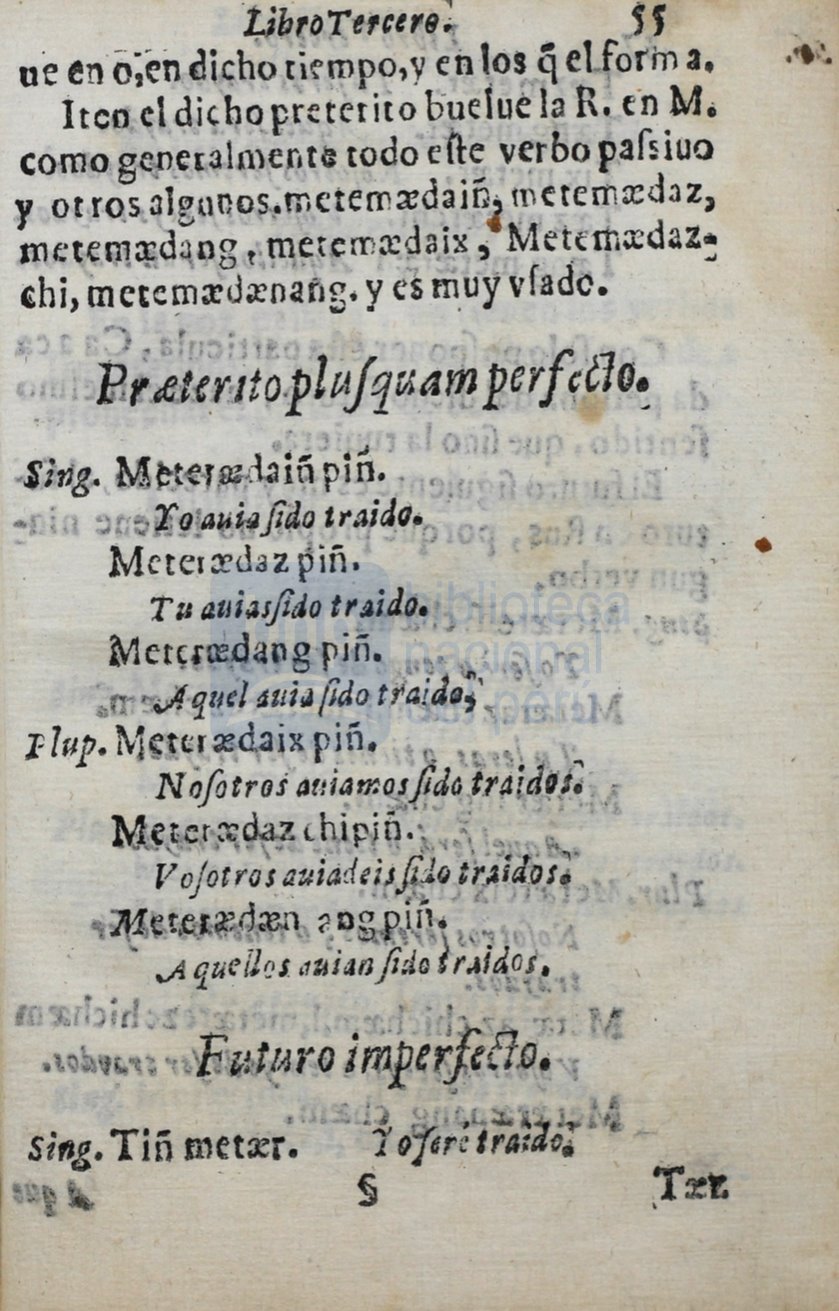 Libro Tercero. 55
ue en o, en dicho tiempo, y en los q̃ el forma.
Iten el dicho preterito buelue la R. en M.
como generalmente todo eſte verbo paſsiuo
y otros algunos. metemædaiñ, metemædaz,
metemædang, metemædaix, Metemædaz-
chi, metemædænang. y es muy vſado.
Præterito pluſquam perfecto.
Sing. Meterædaiñ piñ.
Yo auia ſido traido.
Meterædaz piñ.
Tu auias ſido traido.
Meterædang piñ.
Aquel auia ſido traido,
Plup. Meterædaix piñ.
Noſotros auiamos ſido traidos.
Meterædaz chipiñ.
Voſotros auiadeis ſido traidos.
Meterædæn ang piñ.
Aquellos auian ſido traidos.
Futuro imperfecto.
Sing. Tiñ metær. Yo ſere traido.
§ Tær
biblioteca
nacional
del perú